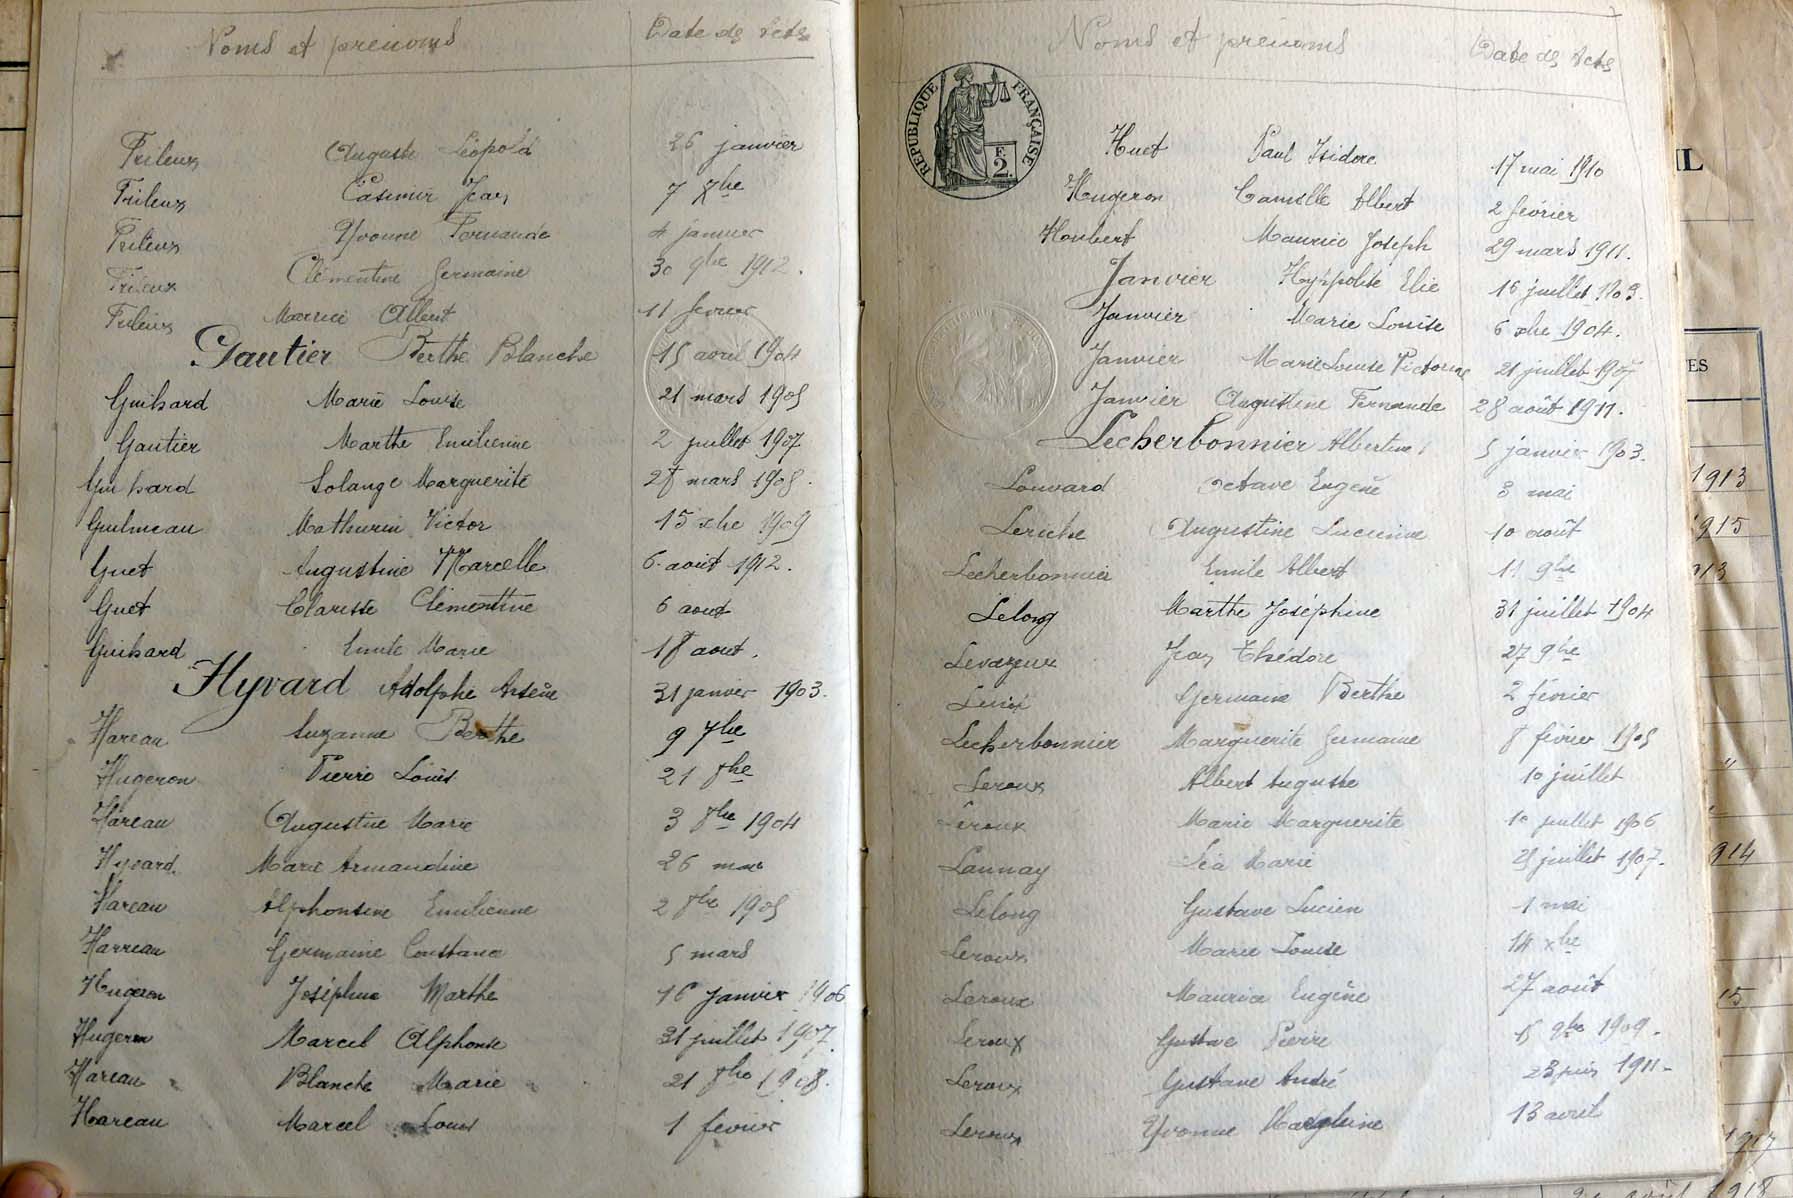 Noms et prénoms Date des actes
Frileux Auguste Léopold 26 janvier
Frileux Casimir Jean 7 Xbre
Frileux Yvonne Fernande 4 janvier
Frileux Clémentine Germaine 30 9bre 1912.
Frileux Albert 11 fevrier
Gautier Berthe Blanche 15 avril 1904
Guihard Marie Louise 21 mars 1905
Gautier Marthe Emilienne 2 juillet 1907
Guihard Solange Marguerite mars 1908.
Guilmeau Mathurin Victor 15 xbre 1909
Guet Augustine Marcelle 6 août 1912.
Guet Clarisse Clémentine 6 aout
Guihard Emile Marie 18 aout.
Hyvard Adolphe Arsène 31 janvier 1903.
Hareau Suzanne Berthe 9 7bre
Hugeron Pierre Louis 21 8bre
Hareau Augustine Marie 3 8bre 1904
Hyvard. Marie Armandine 26
Hareau Alphonsine Emilienne 2 8bre 1905
Harreau Germaine Constance 5 mars
Hugeron Joséphine Marthe 16 janvier 1906
Hugeron Marcel Alphonse 31 juillet 1907.
Hareau Blanche Marie 21 8bre 1908.
Hareau Marcel Louis 1 février
Noms et prénoms Date des actes
RÉPUBLIQUE FRANÇAISE
F.
2.
Huet Paul Isidore 17 mai 1910
Hugeron Camille Albert 2 février
Houbert Maurice Joseph 29 mars 1911.
Janvier Hyppolite Elie 16 juillet 1903.
Janvier Marie Louise 6 xbre 1904.
Janvier Marie Louise Victorine 21 juillet 1907
Janvier Augustine Fernande 28 août 1911.
Lecherbonnier Albertine 5 janvier 1903.
Louvard Octave Eugène 3 mai
Leriche Augustine Lucienne 10 août
Lecherbonnier Emile Albert 11 9bre
Lelong Marthe Joséphine 31 juillet 1904
Levazeux Jean Théodore 27 9bre
Germaine Berthe 2 février
Lecherbonnier Marguerite Germaine 8 février 1905
Leroux Albert Auguste 10 juillet
Leroux Marie Marguerite 10 juillet 1906
Launay Léa Marie juillet 1907.
Lelong Gustave Lucien 1 mai
Leroux Marie Louise 14 xbre
Leroux Maurice Eugène 27 août
Leroux Gustave Pierre 15 9bre 1909.
Leroux Gustave André 23 juin 1911.
Leroux Yvonne 13 avril
IL
ES
1913
1915
913
"
914
15
1917
1918